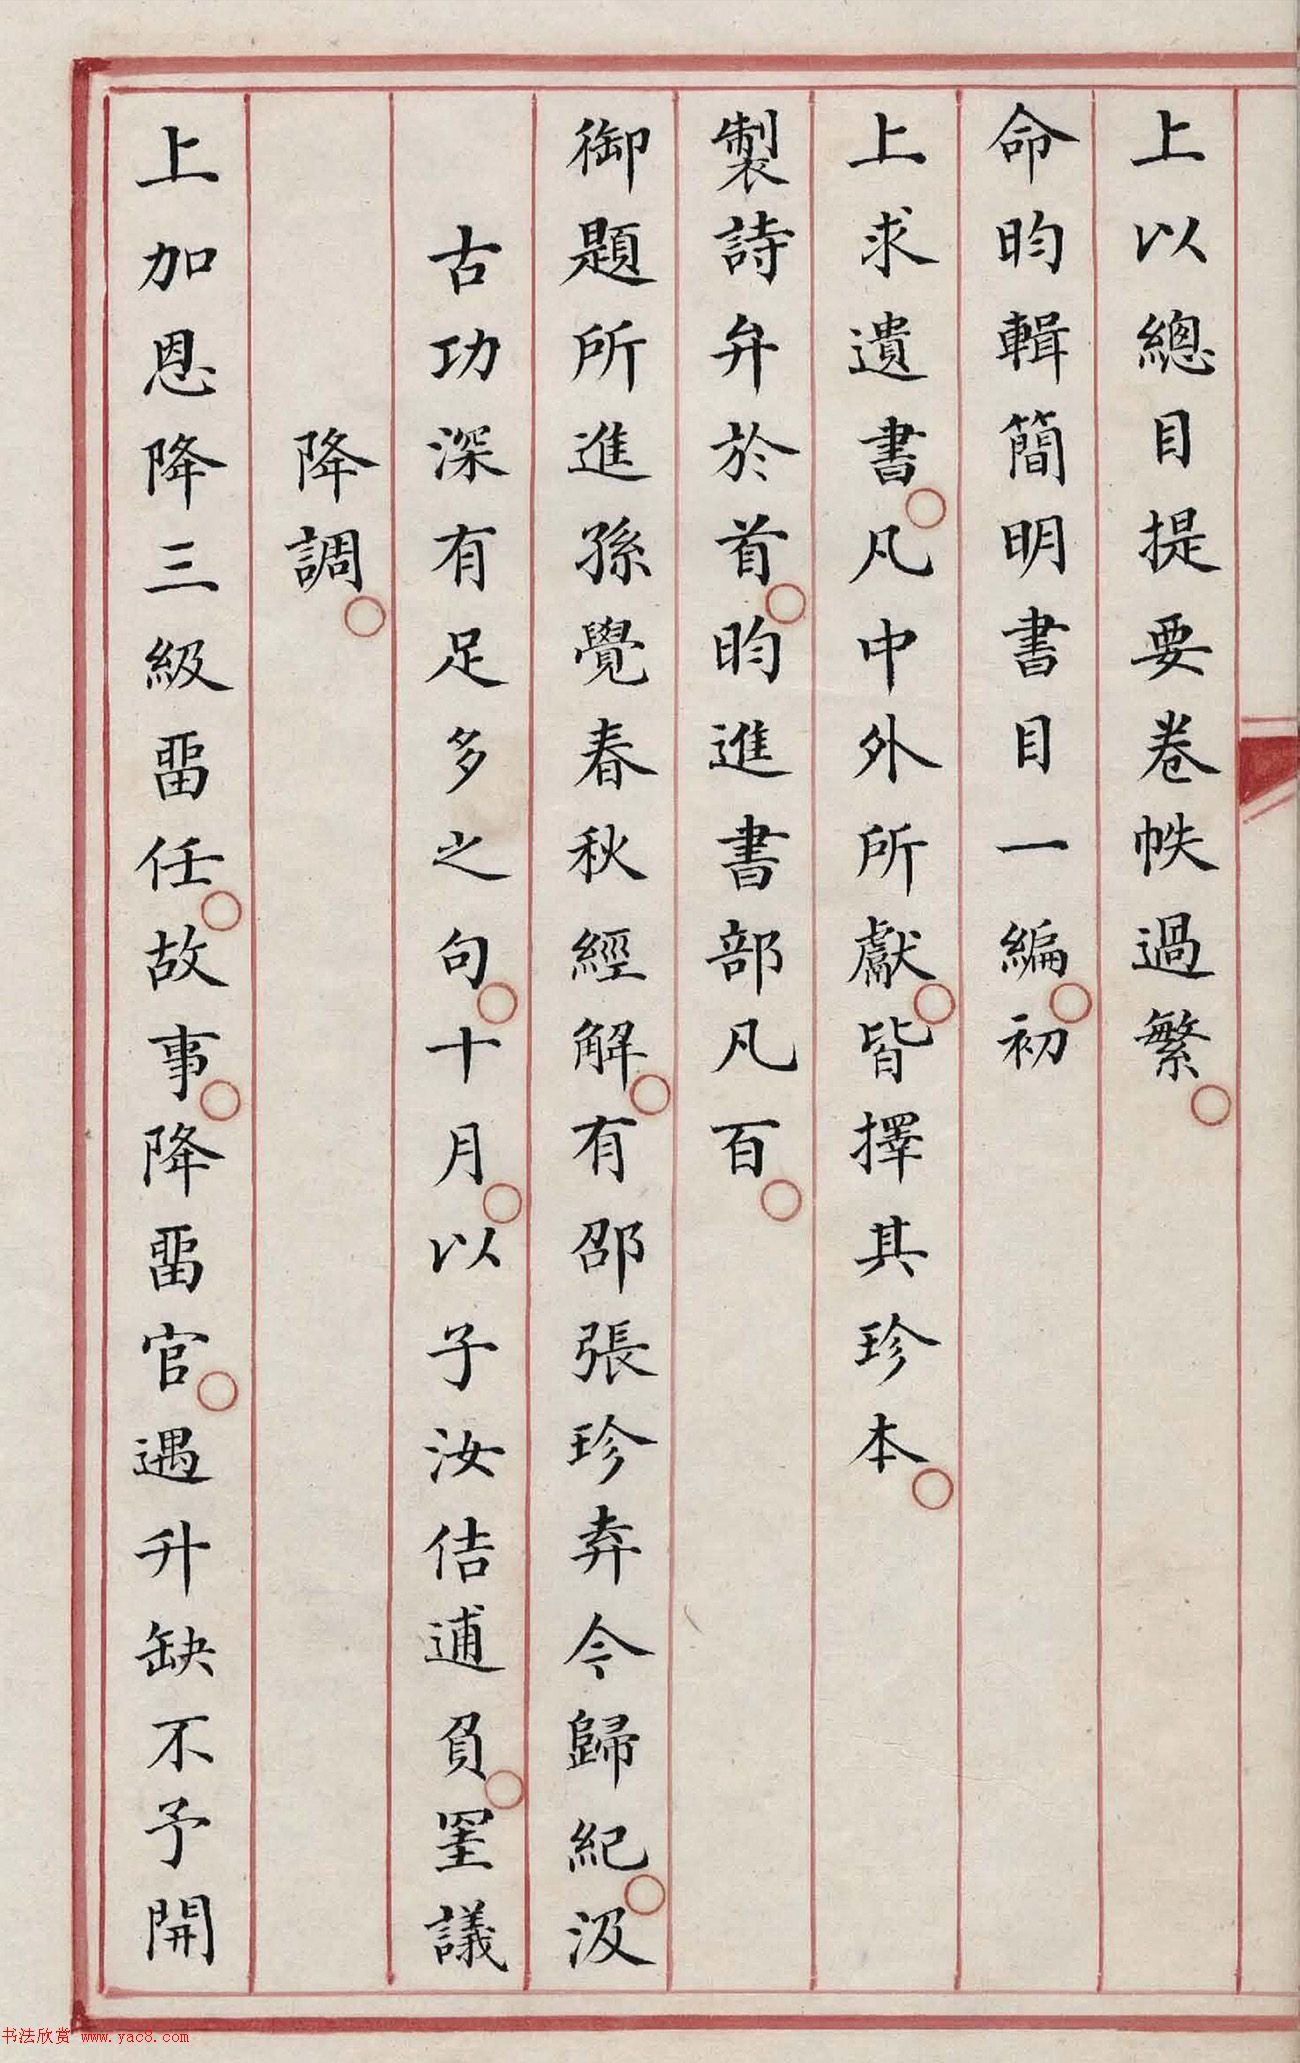 上以總目提要卷帙過繁
命昀輯簡明書目一編初
上求遺書凡中外所獻皆擇其珍本
製詩弁於首昀進書部凡百
御題所進孫覺春秋經解有邵張珍弆今歸紀汲
古功深有足多之句十月以子汝佶逋負罣議
降調
上加恩降三級畱任故事降畱官遇升缺不予開
书法欣赏 www.yac8.com